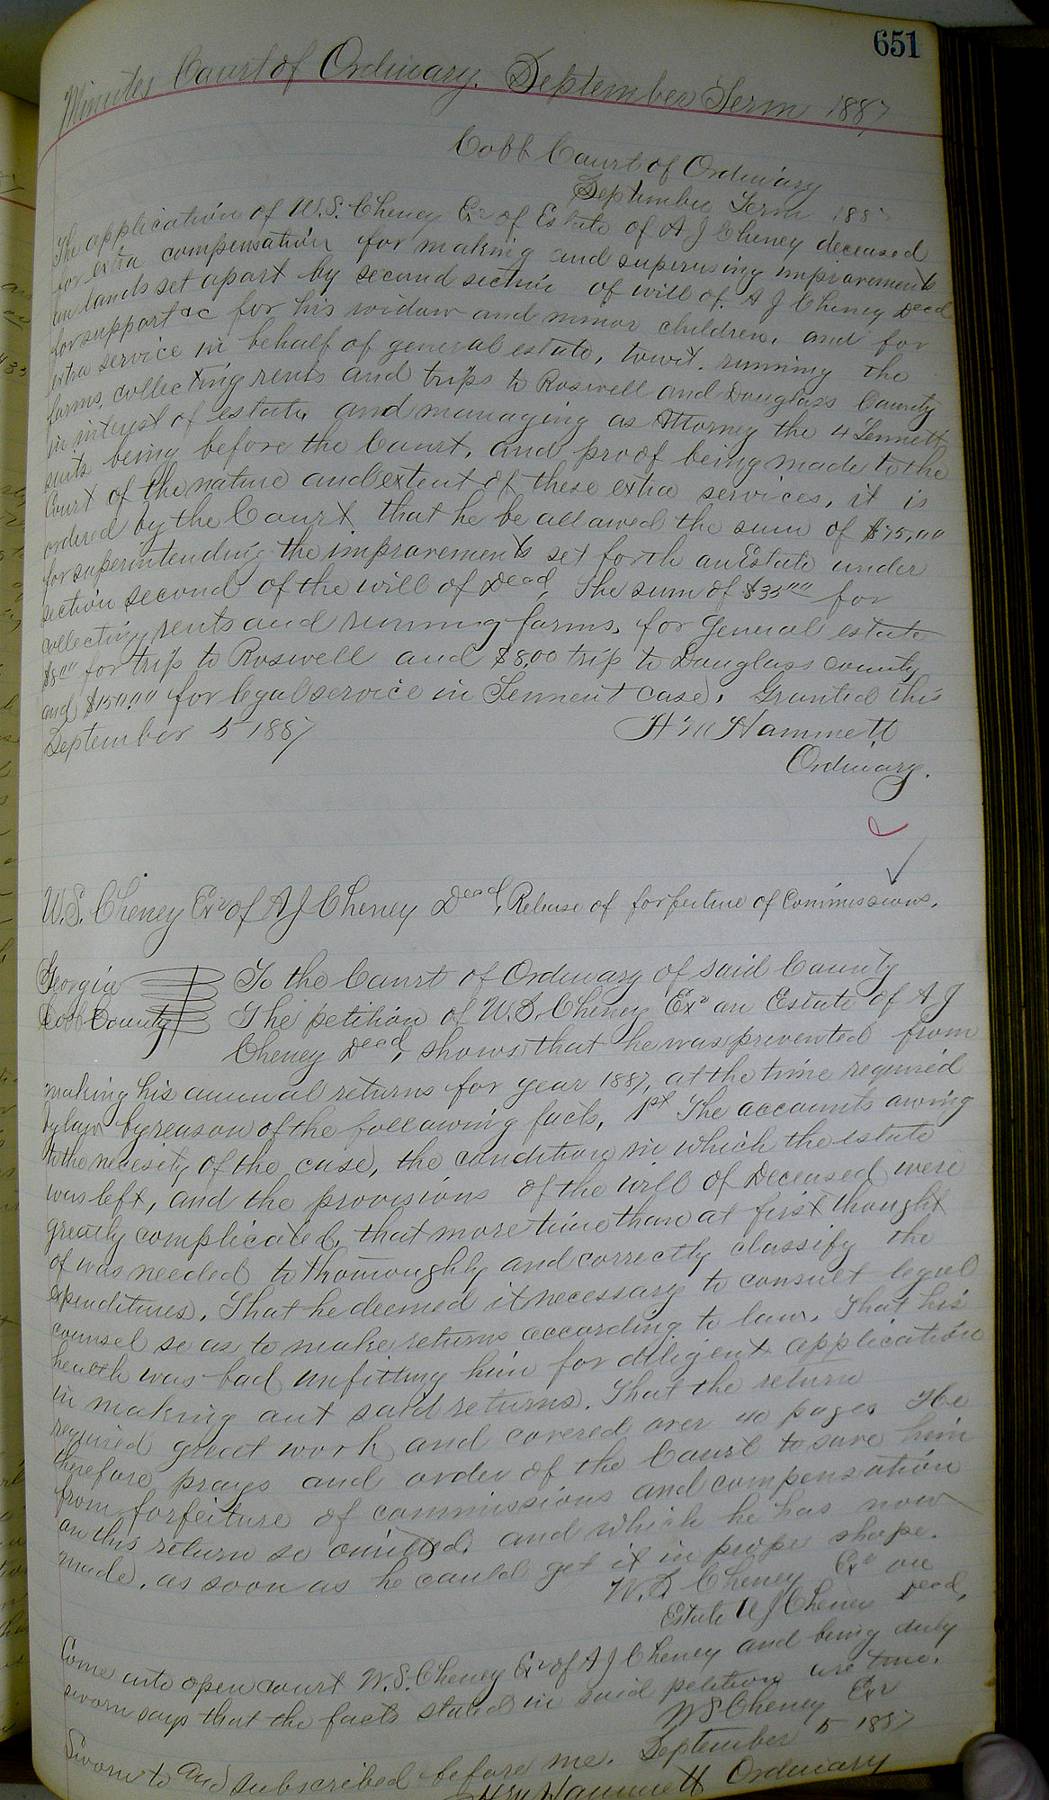 651
Minutes Court of Ordinary. September Term 1887
Cobb Court of Ordinary
September Term 1887
The application of W.S. Cheney Exr of Estate of A J Cheney deceased
for extra compensation for making and supervising improvements
on lands set apart by second section of will of A J Cheney Decd
for support &c for his widow and minor children, and for
extra service in behalf of general estate, towit. running the
farms, collecting rents and trips to Roswell and Douglass County
in interest of estate, and managing as Attorney the 4 Tennett
suits being before the Court, and proof being made to the
Court of the nature and extent of these extra services, it is
ordered by the Court that he be allowed the sum of $75.00
for superintending the improvements set forth on Estate under
section second of the will of Decd, The sum of $35.00 for
collecting rents and running farms, for General estate
$8.00 for trip to Roswell and $8.00 trip to Douglass county
and $150.00 for legal service in Tennent case. Granted this
September 5 1887 H M Hammett
Ordinary.
W.S. Cheney Exr of A J Cheney Decd, Release of forfeiture of Commissions.
Georgia To the Court of Ordinary of said County
Cobb County The petition of W.S. Cheney Exr on Estate of A J
Cheney Decd, shows that he was prevented from
making his annual returns for year 1887, at the time required
by law by reason of the following facts, 1st The accounts owing
to the necesity of the case, the condition in which the estate
was left, and the provisions of the will of Deceased were
greatly complicated, that more time than at first thought
of was needed to thoroughly and correctly classify the
expenditures. That he deemed it necessary to consult legal
counsel so as to make returns according to law. That his
health was bad unfitting him for diligent application
in making out said returns. That the return
required great work and covered over 40 pages He
therefore prays and order of the Court to save him
from forfeiture of commissions and compensation
on this return so omitted, and which he has now
made, as soon as he could get it in proper shape.
W.S. Cheney Exr on
Estate A J Cheney Decd,
Come into open court W.S. Cheney Exr of A J Cheney and being duly
sworn says that the facts stated in said petition are true.
W S Cheney Exr
Sworn to and subscribed before me. September 5 1887
H M Hammett Ordinary